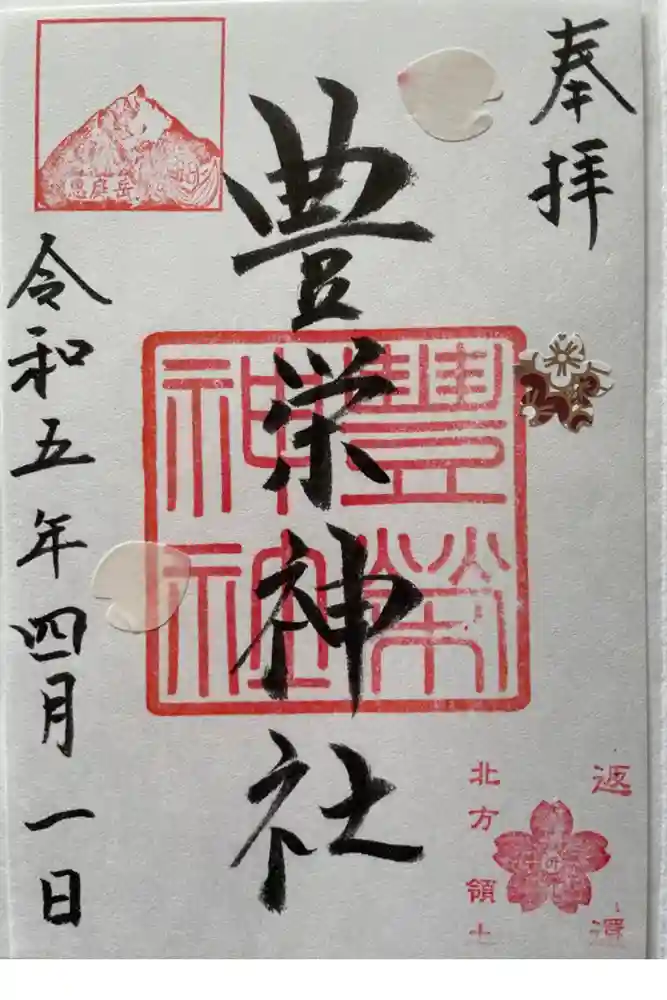 奉拝
豊栄神社
豊榮神社
令和五年四月一日
恵庭岳
返還
北方領土